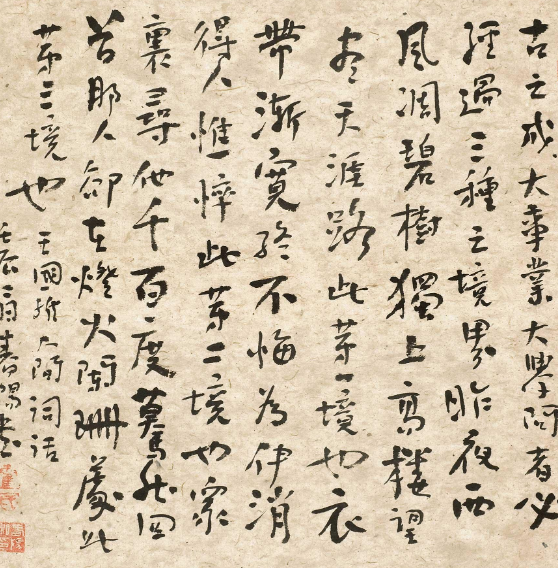 古之成大事業大學問者必
經過三種之境界昨夜西
風凋碧樹獨上高樓望
盡天涯路此第一境也衣
帶漸寬終不悔為伊消
得人憔悴此第二境也眾
裏尋他千百度驀然回
首那人卻在燈火闌珊處此
第三境也王國維人間詞話
春陽書